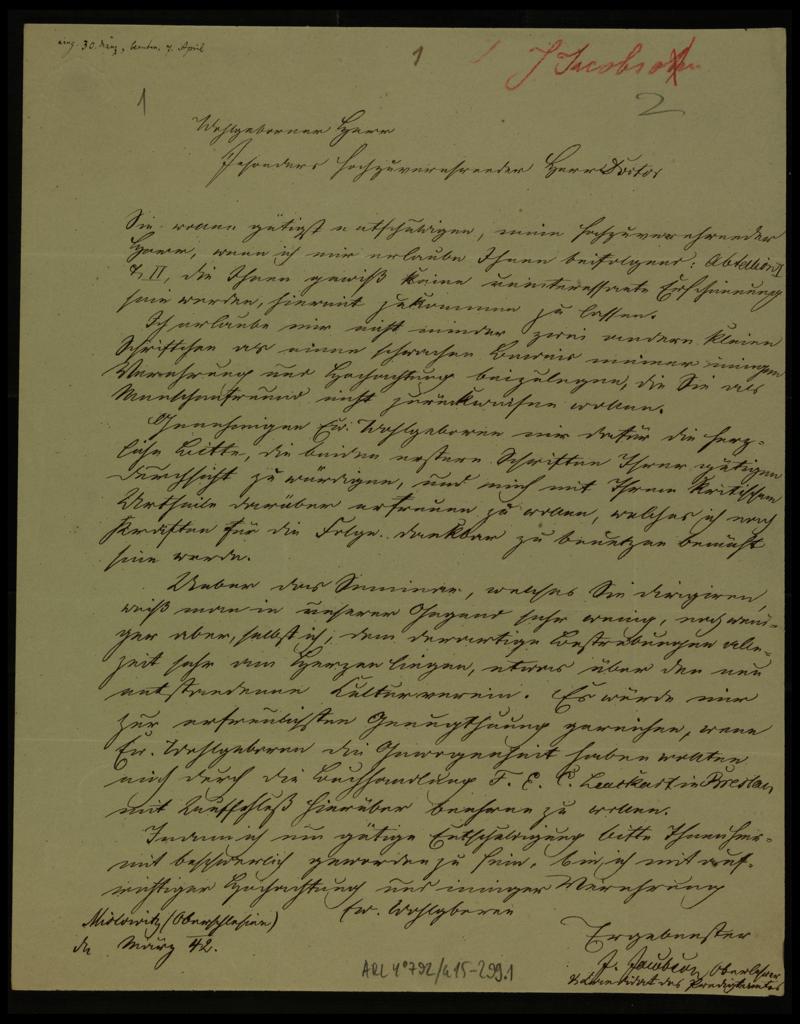 eing. 30. März, beantw. 7. April
1
J Jacobson
1
2
Wohlgeborner Herr
Besonders hochzuverehrender Herr Doctor
Sie wollen gütigst entschuldigen, mein hochzuverehrender
Herr, wenn ich mir erlaube Ihnen beifolgend: Abtheilung I
& II, die Ihnen gewiß keine uninteressante Erscheinung
sein werden, hiermit zukommen zu lassen.
Ich erlaube mir nicht minder zwei andere kleine
Schriftchen als einen schwachen Beweis meiner innigen
Verehrung und Hochachtung beizulegen, die Sie als
Menschenfreund nicht zurückweisen wollen.
Genehmigen Ew. Wohlgeboren mir dafür die herz-
liche Bitte, die beiden erstern Schriften Ihrer gütigen
Durchsicht zu würdigen, und mich mit Ihrem kritischen
Urtheile darüber erfreuen zu wollen, welches ich nach
Kräften für die Folge dankbar zu benutzen bemüht
sein werde.
Ueber das Seminar, welches Sie dirigiren,
weiß man in unserer Gegend sehr wenig, noch weni-
ger aber, selbst ich, dem derartige Bestrebungen alle-
zeit sehr am Herzen liegen, etwas über den neu
entstandenen Culturverein. Es würde mir
zur erfreulichsten Genugthuung gereichen, wenn
Ew. Wohlgeboren die Gewogenheit haben wollten
mich durch die Buchhandlung F. E. C. Leuckart in Breslau,
mit Aufschluß hierüber beehren zu wollen.
Indem ich um gütige Entschuldigung bitte Ihnen hier-
mit beschwerlich geworden zu sein, bin ich mit auf-
richtiger Hochachtung und inniger Verehrung
Ew. Wohlgeboren
Mislowitz (Oberschlesien)
d. März 42.
Ergebenster
J. Jacobson, Oberlehrer
& Candidat des Predigtamtes
ARC 4°792/G15-299.1